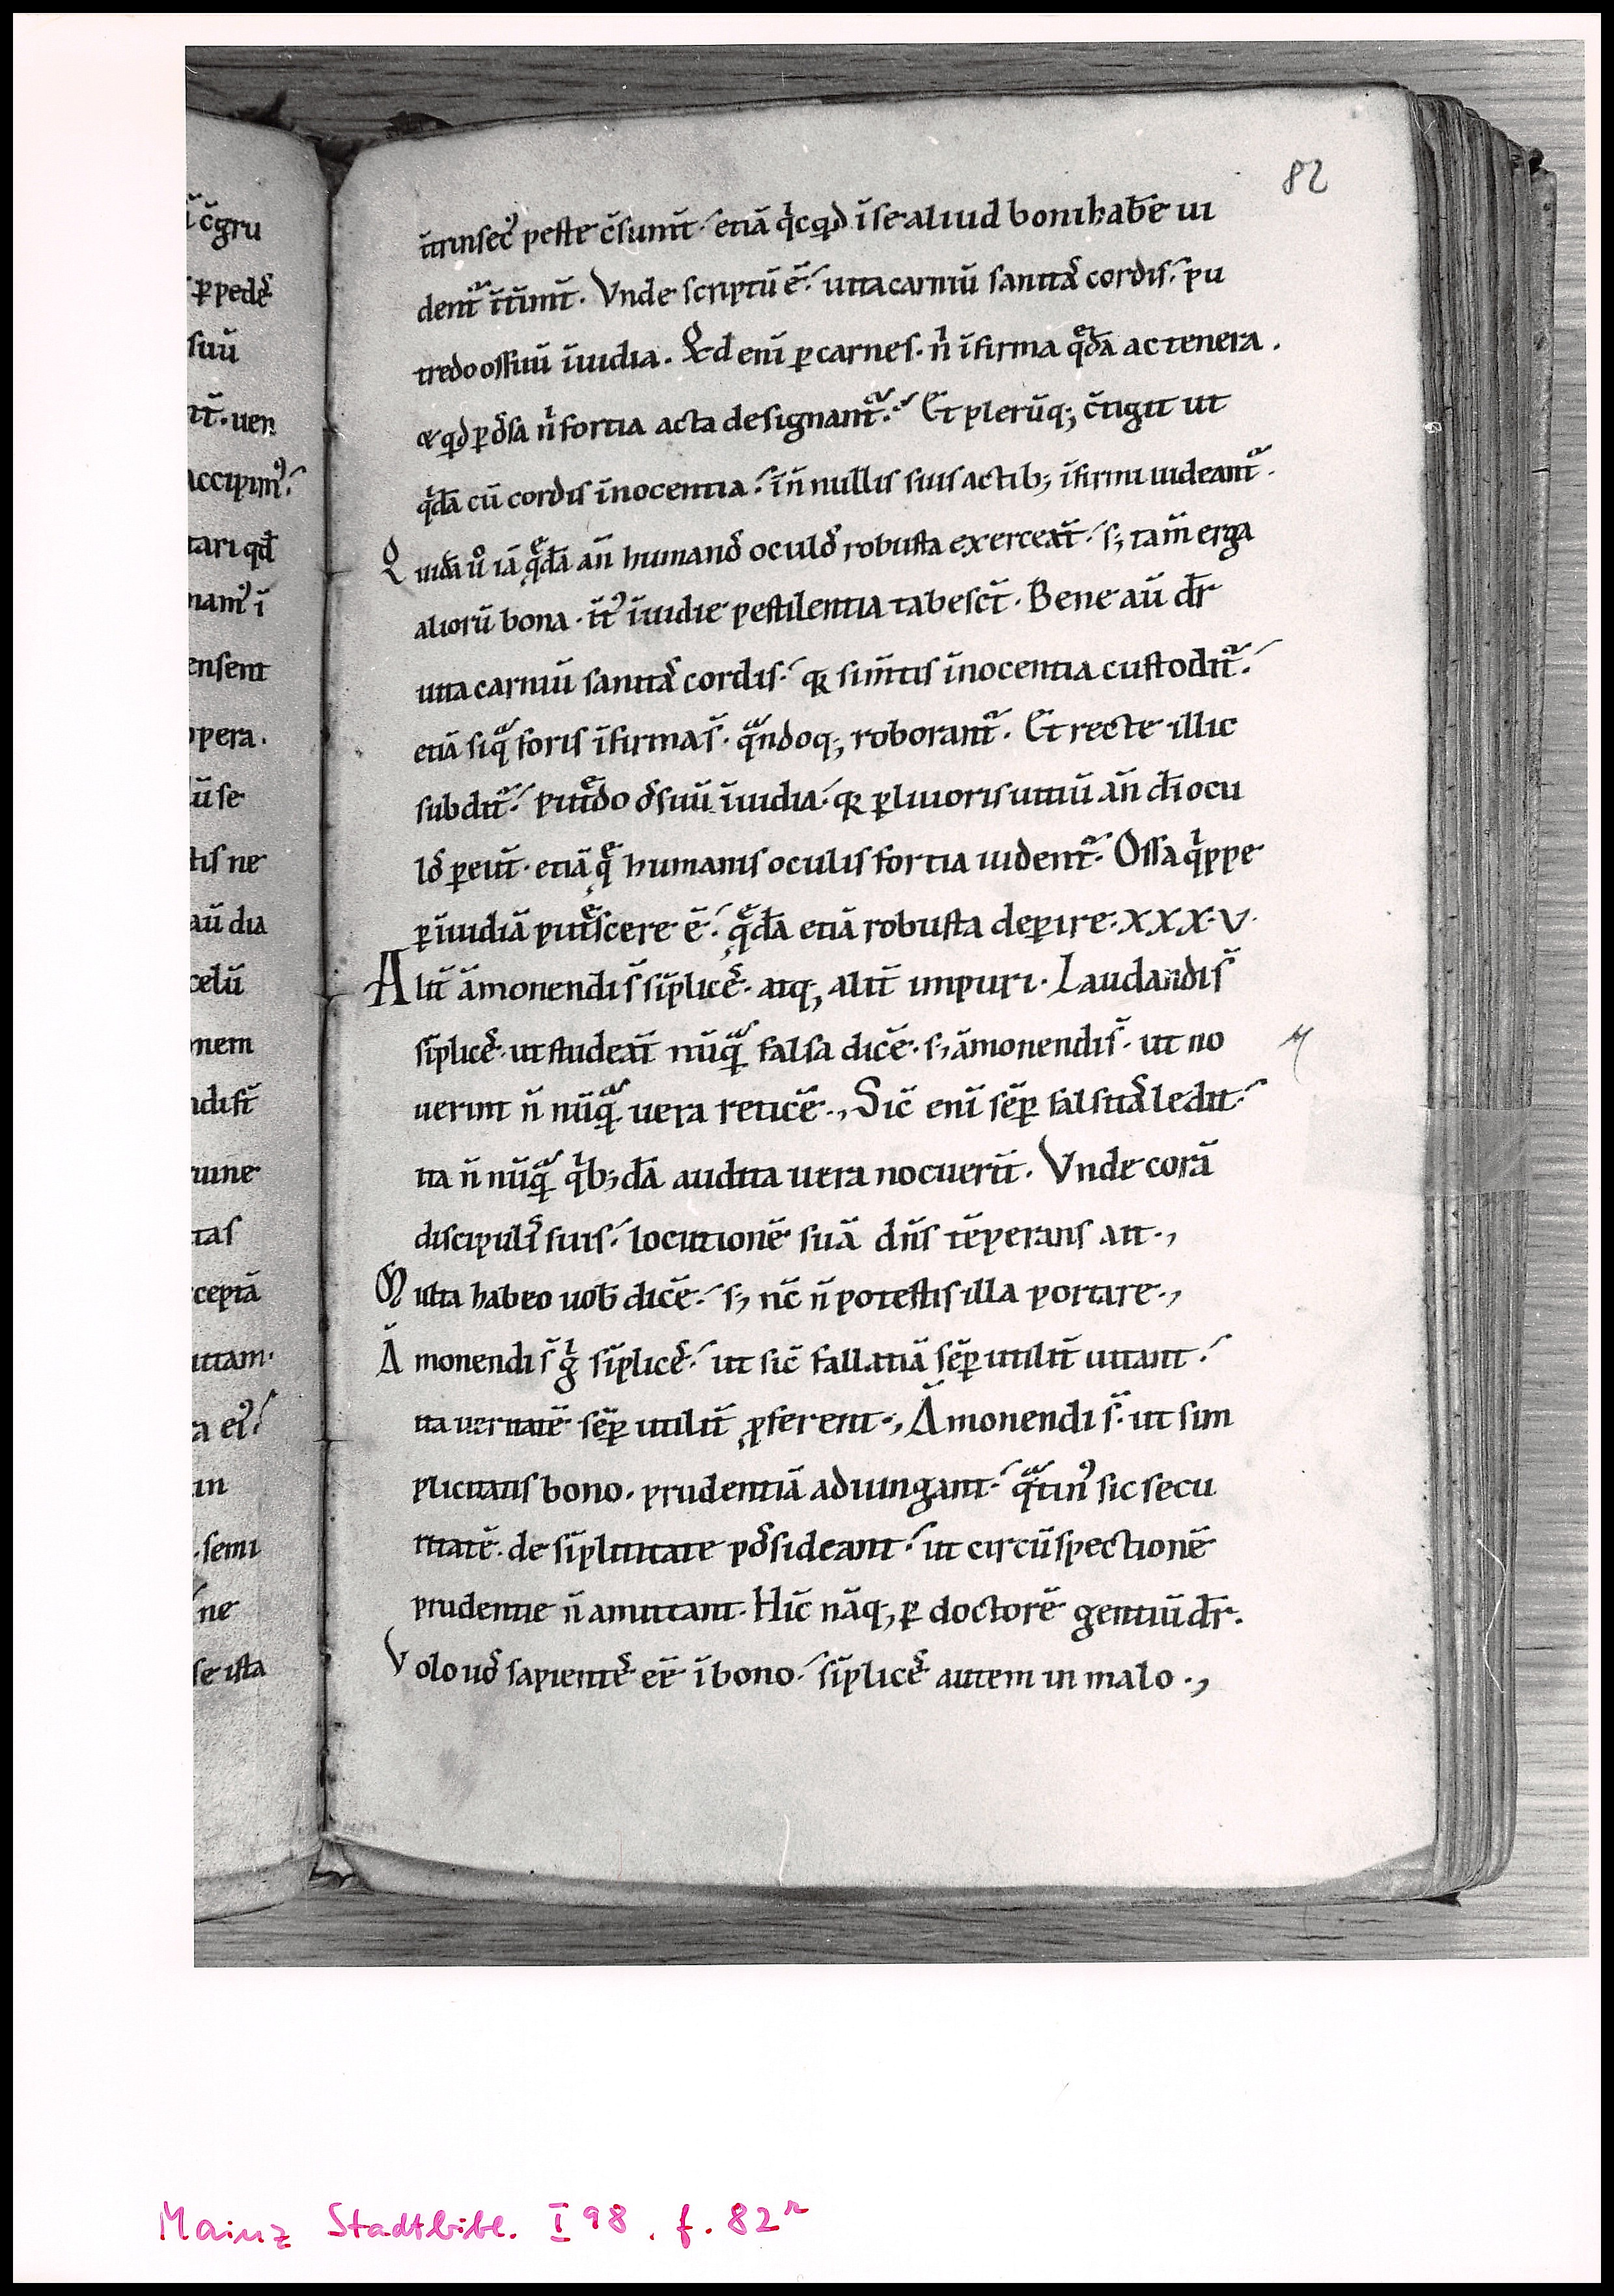 82
ı̄trınſecꝰ peſte c̄ſumt̄· etıā qͥcqͥd ı̄ſe alıud bonı habēe uı
dent᷑ ı̄t̄ımt̄. Vnde scrıptū ē· uıta carnıū ſanıtaͣſ cordıſ· pu
tredo oſſıuū ı̄uıdıa. Qͥd enı̄ ꝑ carneſ. nͥ ı̄fırma qͤdā ac tenera.
& qͥd ꝑ oͦſſa nͥ fortıa acta deſıgnant᷑· Et plerūq; c̄tıgıt ut
qͥdā cū cordıſ ı̄nocentıa· ı̄ n̄nullıſ ſuıſ actıb; ı̄fırmı uıdeant᷑.
Quıdā uͦ ıā qͤdā an̄ humanoͦſ oculoͦſ robuſta exerceāt· ſ; tam̄ erga
alıorū bona· ı̄t̄ꝰ ı̄uıdıe peſtılentıa tabeſct̄. Bene aū dr̄
uıta carnıū ſanıtaͣſ cordıſ· qꝛ ſı m̄tıſ ı̄nocentıa cuſtodıt᷑·
etıā ſıqͣ forıſ ı̄fırma ſ̄· qͣndoq; roborant᷑. Et recte ıllıc
ſubdıt᷑· putͤdo oͦſſuū ı̄uıdıa· qꝛ ꝑ lıuorıſ uıtıū an̄ dı̄ ocu
loͦſ ꝑeut̄· etıā qͤ humanıſ oculıſ fortıa uıdent᷑· Oſſa qͥppe
ꝑ ı̄uıdıā putͤſcere ē· qͤdā etıā robuſta deꝑıre· XXX·V·
Alıt̄ āmonendı ſ̄ ſı̄plıceͤſ· atq; alıt̄ ımpurı. Laudandı ſ̄
ſı̄plıceͤſ· ut ſtudeāt nūqͣ falſa dıc̄e· ſ; āmonendı ſ̄· ut no
uerınt n̄nūqͣ uera retıc̄e·, Sıc̄ enı̄ ſēꝑ falſıtaͣſ ledıt·
ıta n̄nūqͣ qͥb;dā audıta uera nocuerūt. Vnde corā
dıscıpulıͥſ ſuıſ· locutıonē ſuā dn̄ſ tēperanſ aıt·,
Multa habeo uob̄ dıc̄e· ſ; nc̄ n̄ poteſtıſ ılla portare·,
Āmonendı ſ̄ gͥ ſı̄plıceͤſ· ut ſıc̄ fallatıā ſēꝑ utılıt̄ uıtant·
ıta uerıtatē ſēꝑ utılıt̄ ꝓferent·, Āmonendı ſ̄· ut ſım
plıcıtatıſ bono· prudentıā adıungant· qͣtınꝰ ſıc ſecu
rıtatē· de ſı̄plıcıtate poͦſſıdeant· ut cırcūſpectıonē
prudentıe n̄ amıttant· Hıc̄ nāq; ꝑ doctorē gentıū dr̄.
Volo uoͦſ ſapıenteͤſ eē ı̄ bono· ſı̄plıceͤſ autem ın malo·,
Mainz Stadtbibl. I 98. f. 82ʳ